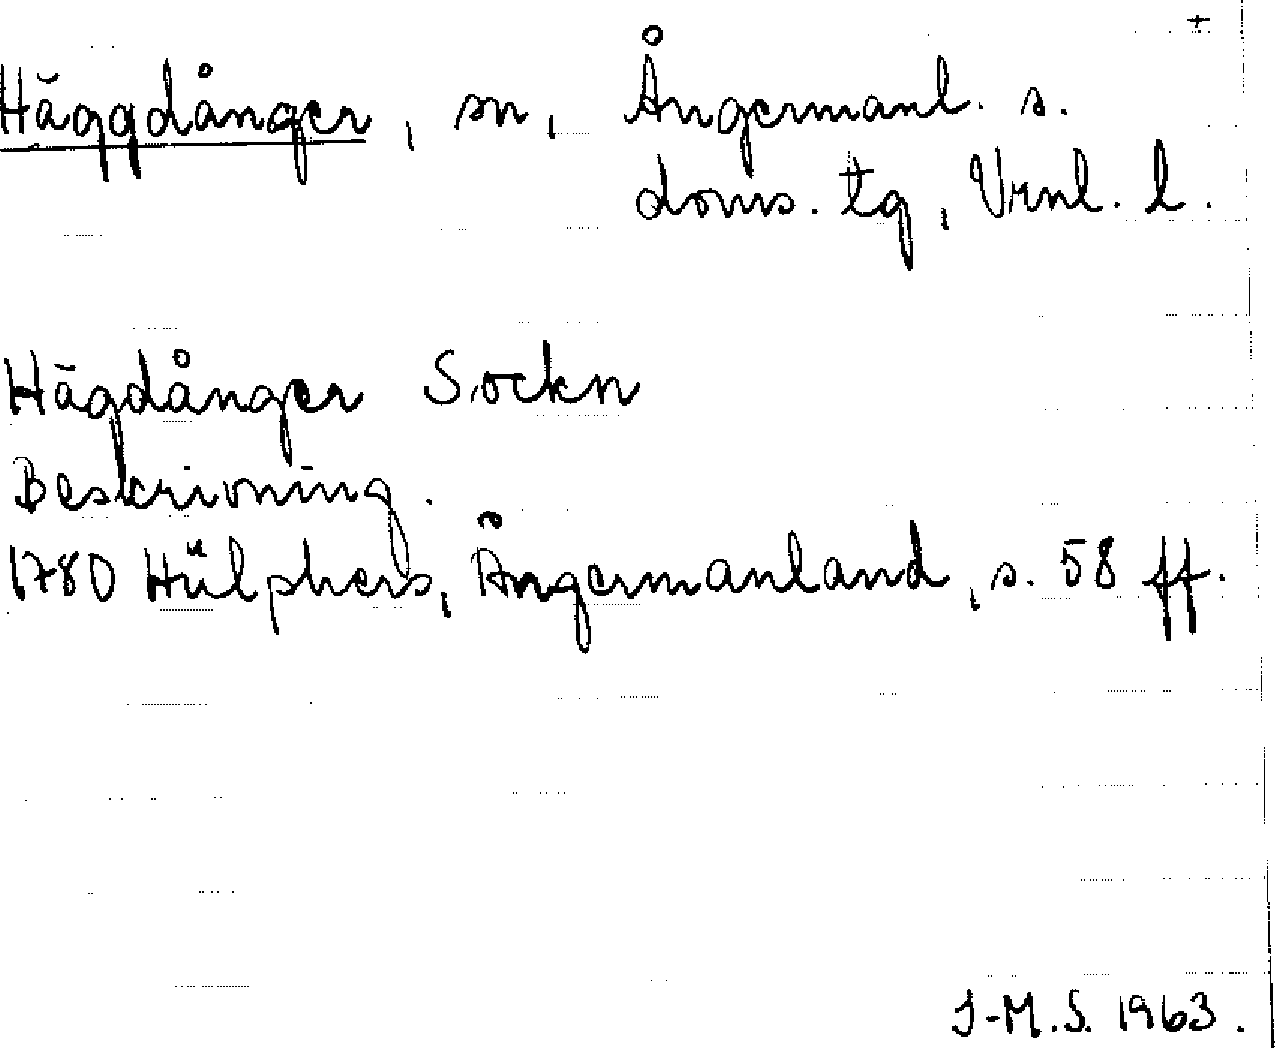 +
Häggdånger, sn, Ångermanl. s.
doms. tg, Vrnl. l.
Hägdånger Sockn
Beskrivning.
1780 Hülphers, Ångermanland, s. 58 ff.
J-M.S. 1963.